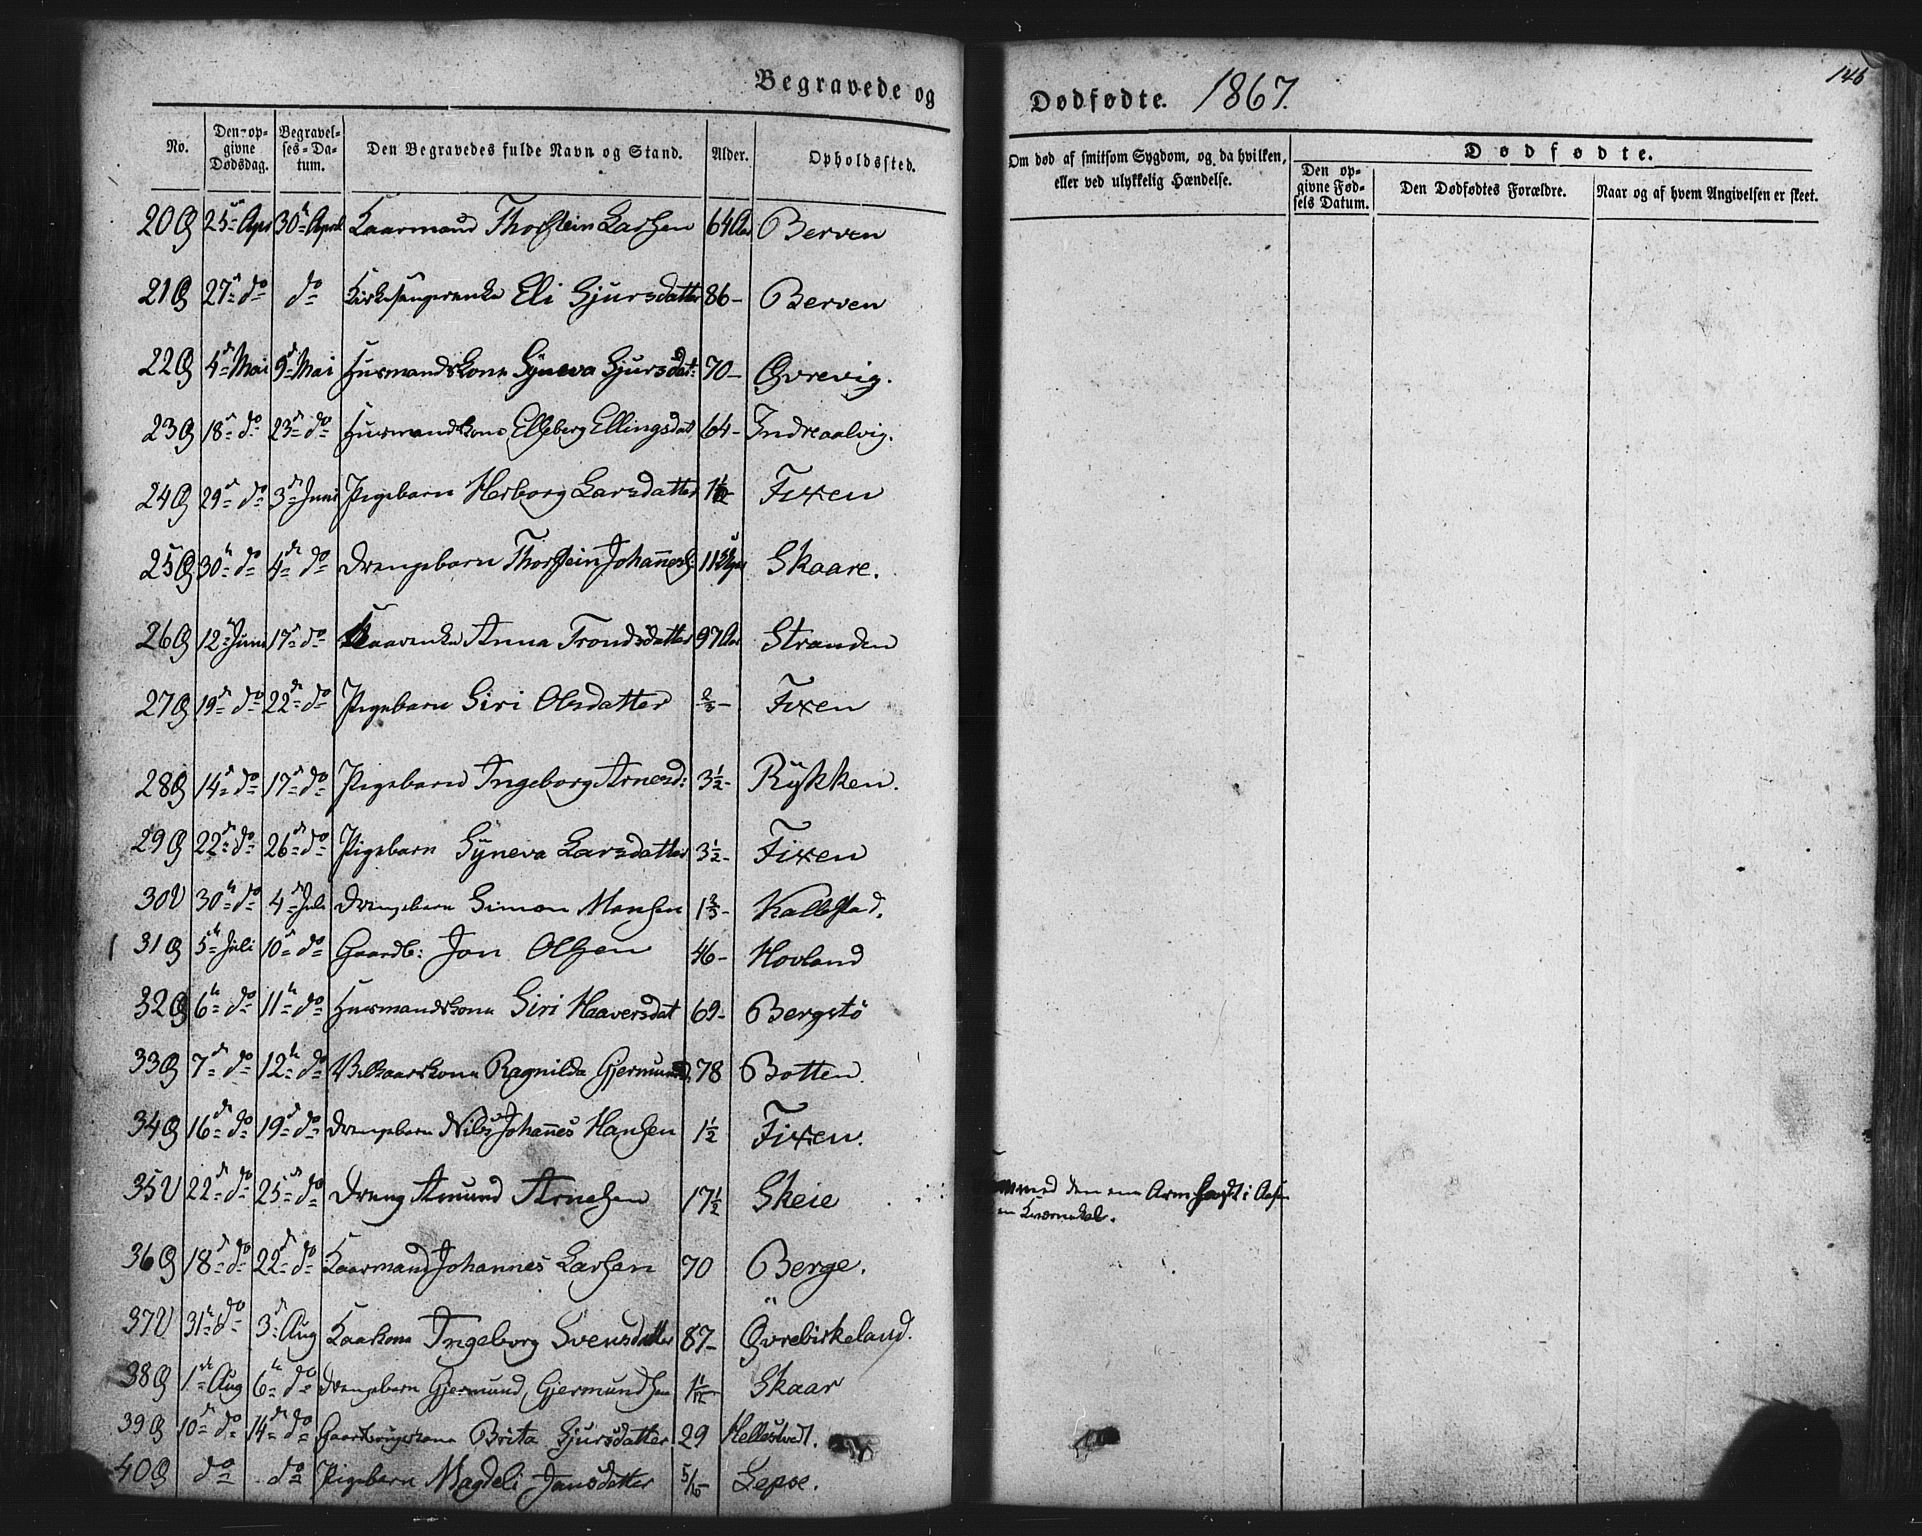 Begravede og
Dødfødte. 1867.
146
No.
Den op-
givne
Dødsdag.
Begravel-
ses-Da-
tum.
Den Begravedes fulde Navn og Stand.
Alder.
Opholdssted.
Om død af smitsom Sygdom, og da hvilken,
eller ved ulykkelig Hændelse.
Dødfødte.
Den op-
givne Fød-
sels Datum.
Den Dødfødtes Forældre.
Naar og af hvem Angivelsen er skeet.
20 Ø 25de Apr 30te April Kaarmand Thorstein Larsen 64 Aar Berven
21 Ø 27de do do Kirkesangerenke Eli Sjursdatter 86 - Berven
22 Ø 4de Mai 9de Mai Husmandskone Syneva Sjursdat: 70 - Øvrevig.
23 Ø 18de do 23de do Husmandskone Ellingsdat 64 - Indreaalvig.
24 Ø 29de do 3de Juni Pigebarn Herborg Larsdatter Fixen
25 Ø 30te do 4de do Drengebarn Thorstein Johanness: 11 Skaare.
26 Ø 12te Juni 17de do Kaarenke Anna Trondsdatter 97 Aar Stranden
27 Ø 19de do 22de do Pigebarn Siri Olsdatter - Fixen
28 Ø 14de do 17de do Pigebarn Ingeborg Arnesd: 3½ - Rykken.
29 Ø 22de do 26de do Pigebarn Syneva Larsdatter 3½ - Fixen
30 V 30te do 4de Juli Drengebarn Simon Monsen 1⅔ - Kallestad.
31 Ø 5te Juli 10de do Gaardb: Jon Olsen 46 - Hovland
32 Ø 6te do 11te do Husmandskone Siri Haaversdat 69 - Bergstö
33 Ø 7de do 12te do Vilkaarskone Ragnilda Gjermunds 78 Botten.
34 Ø 16de do 19de do Drengebarn Nils Johannes Hansen 1½ Fixen.
35 V 22de do 25de do Dreng Amund Arnesen 17½ Skeie
med den ene Arm i
en Kværnekal.
36 Ø 18de do 22de do Kaarmand Johannes Larsen 70 Berge.
37 V 31te do 3de Aug Kaakone Ingeborg Svensdatter 87 - Øvrebirkeland.
38 Ø 1ste Aug 6te do Drengebarn Gjermund Gjermundsen Skaar
39 Ø 10de do 14de do Gaardbrugerkone Brita Sjursdatter 29
40 Ø do do Pigebarn Magdeli Jansdatter 5/6 - Lepsoe.